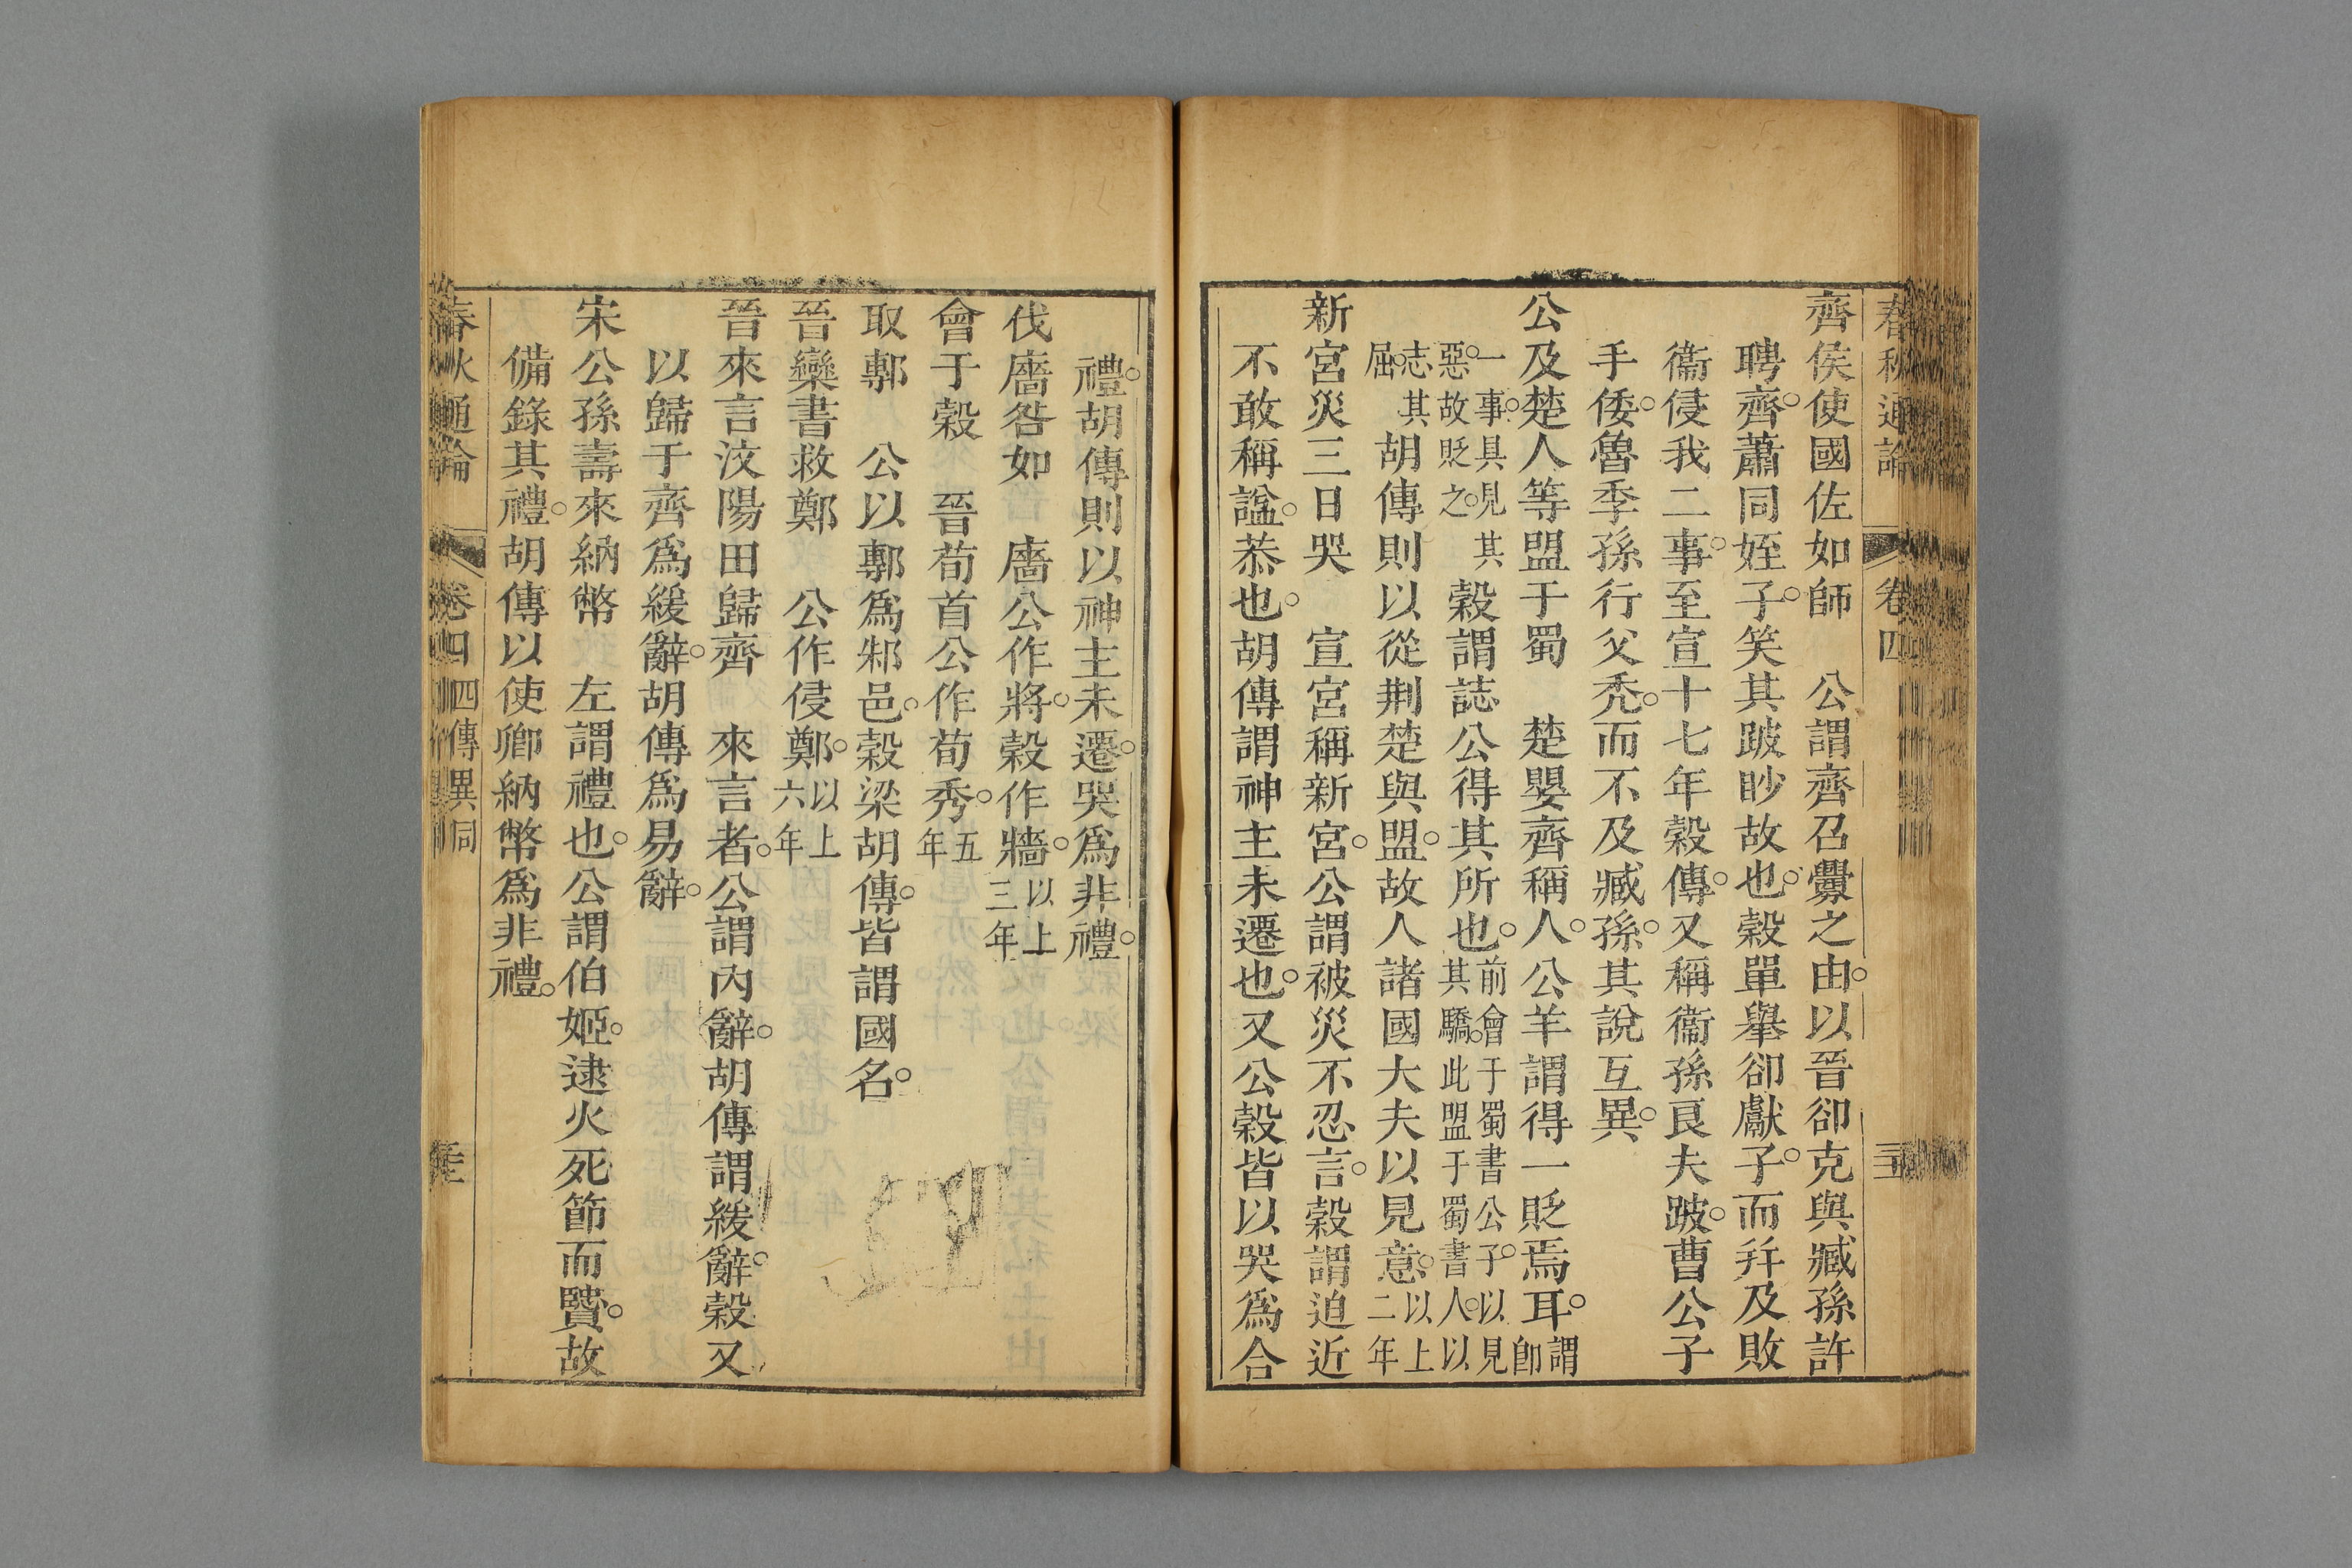 春秋通論 卷四
齊侯使國佐如師 公謂齊召釁之由○以晉卻克與臧孫許
聘齊○蕭同姪子○笑其跛眇故也○穀單舉卻獻子○而幷及敗
衞侵我二事○至宣十七年穀傳○又稱衞孫良夫跛○曹公子
手僂○魯季孫行父禿○而不及臧孫○其說互異○
公及楚人等盟于蜀 楚嬰齊稱人○公羊謂得一貶焉耳○謂卽
一事○具見其惡○故貶之○ 穀謂誌公得其所也○前會于蜀書公子○以見其驕○此盟于蜀書人○以
志其屈○胡傳則以從荆楚與盟○故人諸國大夫以見意○以上二年
新宮災三日哭 宣宮稱新宮○公謂被災不忍言○穀謂迫近
不敢稱謚○恭也○胡傳謂神主未遷也○又公穀皆以哭爲合
禮○胡傳則以神主未遷○哭爲非禮○
伐廧咎如 廧公作將○穀作牆○以上三年
會于穀 晉荀首公作荀秀○五年
取鄟 公以鄟爲邾邑○穀梁胡傳○皆謂國名○
晉欒書救鄭 公作侵鄭○以上六年
晉來言汶陽田歸齊 來言者○公謂內辭○胡傳謂緩辭○穀又
以歸于齊爲緩辭○胡傳爲易辭○
宋公孫壽來納幣 左謂禮也○公謂伯姬○逮火死節而賢○故
備錄其禮○胡傳以使卿納幣爲非禮○
春秋通論 卷四 四傳異同